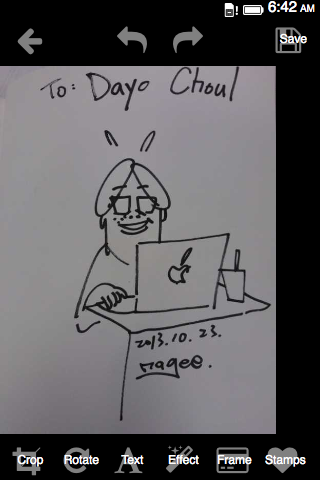 6:42 AM
Save
To: Dayo Choul
2013.10.23.
magee.
Crop Rotate Text Effect Frame Stamps